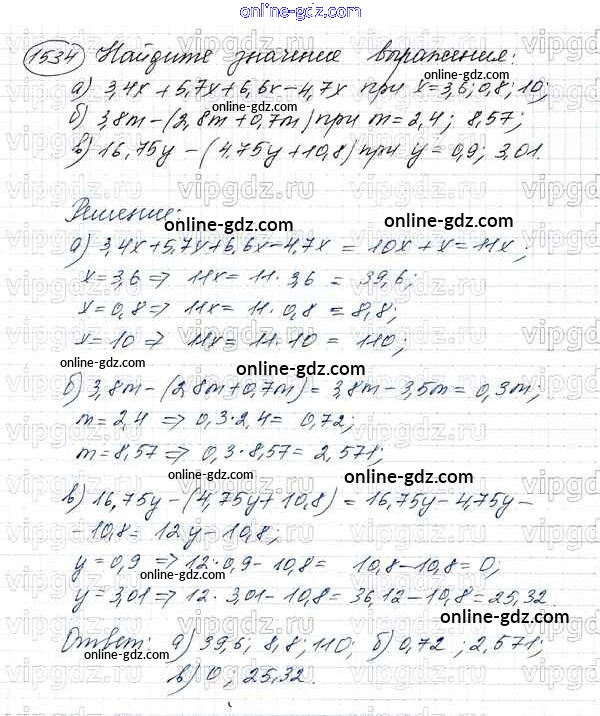 online-gdz.com
1534 Найдите значение выражения:
а) 3,4x + 5,7x + 6,6x - 4,7x при x = 3,6; 0,8; 10;
б) 3,8m - (2,8m + 0,7m) при m = 2,4; 8,57;
в) 16,75y - (4,75y + 10,8) при y = 0,9; 3,01.
Решение:
а) 3,4x + 5,7x + 6,6x - 4,7x = 10x + x = 11x;
x = 3,6 => 11x = 11 · 3,6 = 39,6;
x = 0,8 => 11x = 11 · 0,8 = 8,8;
x = 10 => 11x = 11 · 10 = 110;
б) 3,8m - (2,8m + 0,7m) = 3,8m - 3,5m = 0,3m;
m = 2,4 => 0,3 · 2,4 = 0,72;
m = 8,57 => 0,3 · 8,57 = 2,571;
в) 16,75y - (4,75y + 10,8) = 16,75y - 4,75y -
- 10,8 = 12y - 10,8;
y = 0,9 => 12 · 0,9 - 10,8 = 10,8 - 10,8 = 0;
y = 3,01 => 12 · 3,01 - 10,8 = 36,12 - 10,8 = 25,32.
Ответ: а) 39,6; 8,8; 110; б) 0,72; 2,571;
в) 0; 25,32.
online-gdz.com